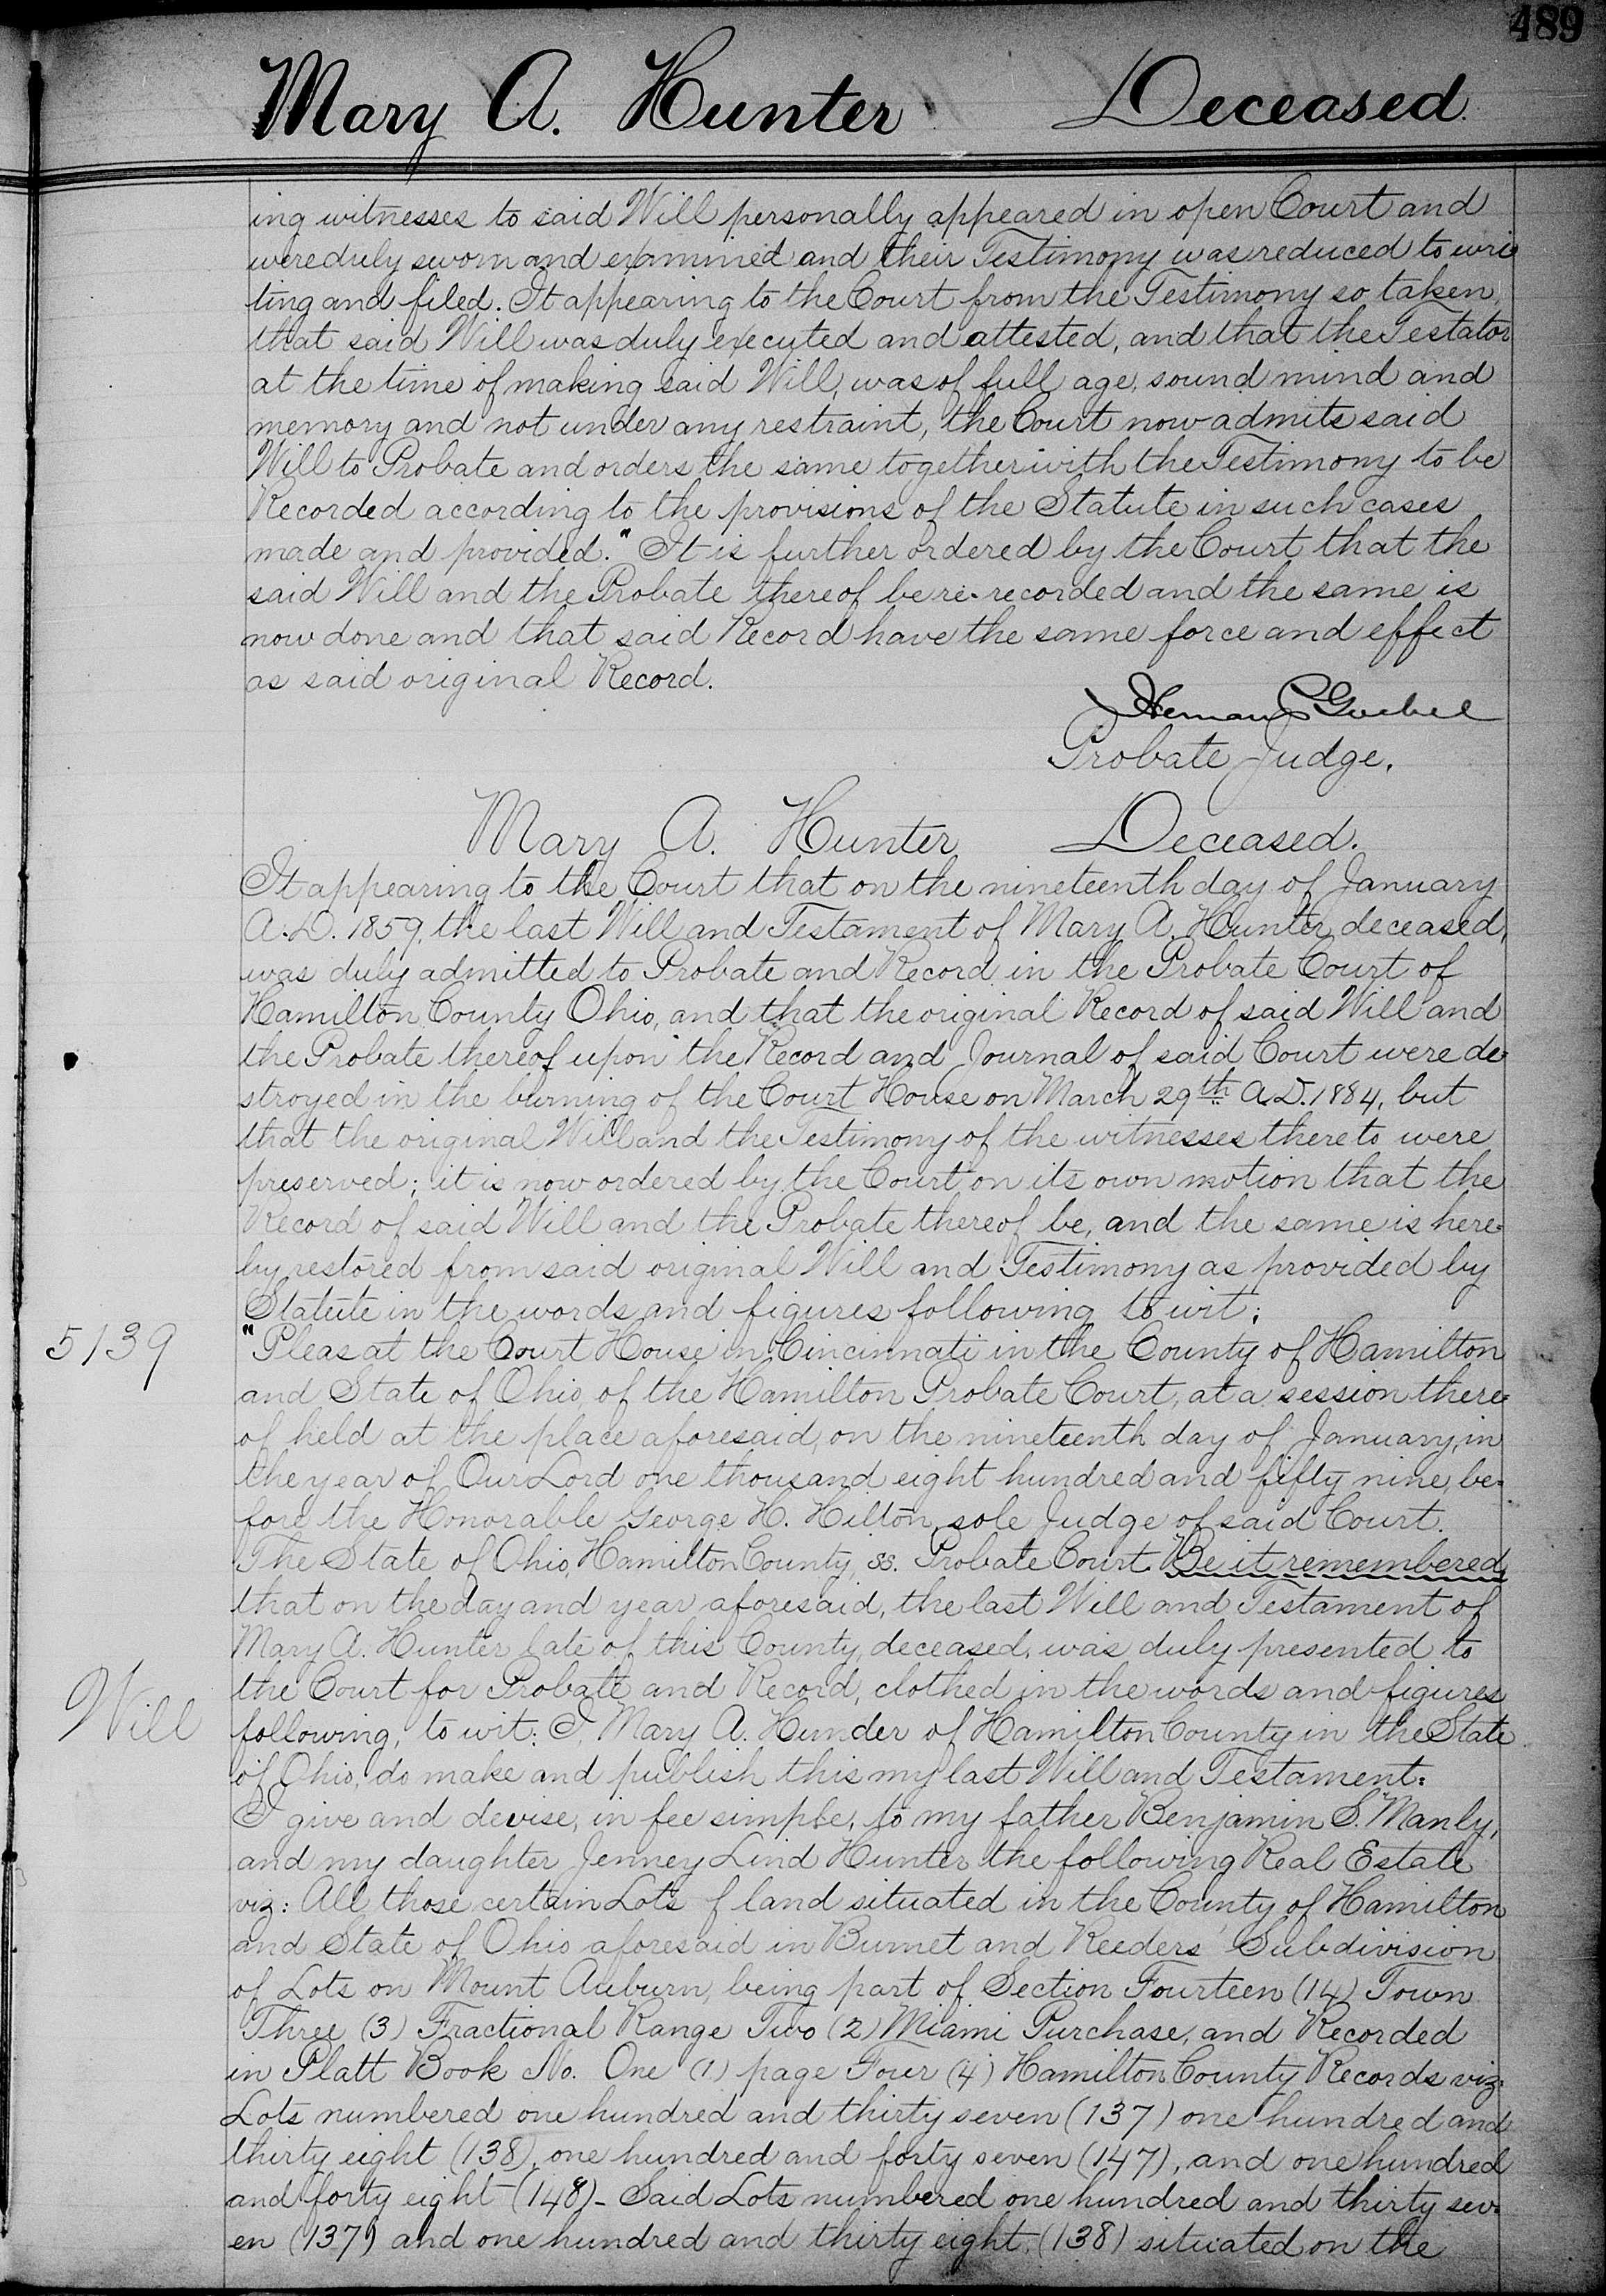 489
Mary A. Hunter Deceased.
ing witnesses to said Will personally appeared in open Court and
were duly sworn and examined and their Testimony was reduced to wri
ting and filed. It appearing to the Court from the Testimony so taken,
that said Will was duly executed and attested, and that the Testator
at the time of making said Will, was of full age, sound mind and
memory and not under any restraint, the Court now admits said
Will to Probate and orders the same together with the Testimony to be
Recorded according to the provisions of the Statute in such cases
made and provided." It is further ordered by the Court that the
said Will and the Probate thereof be re-recorded and the same is
now done and that said Record have the same force and effect
as said original Record.
Herman P Goebel
Probate Judge.
Mary A. Hunter Deceased.
It appearing to the Court that on the nineteenth day of January
A.D. 1859, the last Will and Testament of Mary A. Hunter, deceased,
was duly admitted to Probate and Record in the Probate Court of
Hamilton County Ohio, and that the original Record of said Will and
the Probate thereof upon the Record and Journal of said Court were de-
stroyed in the burning of the Court House on March 29th A.D. 1884, but
that the original Will and the Testimony of the witnesses thereto were
preserved; it is now ordered by the Court on its own motion that the
Record of said Will and the Probate thereof be, and the same is here=
by restored from said original Will and Testimony as provided by
Statute in the words and figures following to wit:
5139
"Pleas at the Court House in Cincinnati in the County of Hamilton
and State of Ohio, of the Hamilton Probate Court, at a session there=
of held at the place aforesaid, on the nineteenth day of January, in
the year of Our Lord one thousand eight hundred and fifty nine, be=
fore the Honorable George H. Hilton, sole Judge of said Court.
The State of Ohio, Hamilton County, ss. Probate Court. Be it remembered,
that on the day and year aforesaid, the last Will and Testament of
Mary A. Hunter late of this County, deceased, was duly presented to
the Court for Probate and Record, clothed in the words and figures
Will
following, to wit: I, Mary A. Hunder of Hamilton County in the State
of Ohio, do make and publish this my last Will and Testament:
I give and devise, in fee simple, to my father Benjamin S. Manly,
and my daughter Jenney Lind Hunter the following Real Estate
viz: All those certain Lots f land situated in the County of Hamilton
and State of Ohio aforesaid in Burnet and Reeders' Subdivision
of Lots on Mount Auburn, being part of Section Fourteen (14) Town
Three (3) Fractional Range Two (2) Miami Purchase, and Recorded
in Platt Book No. One (1) page Four (4) Hamilton County Records viz:
Lots numbered one hundred and thirty seven (137) one hundred and
thirty eight (138), one hundred and forty seven (147), and one hundred
and forty eight (148)- Said Lots numbered one hundred and thirty sev=
en (137) and one hundred and thirty eight (138) situated on the